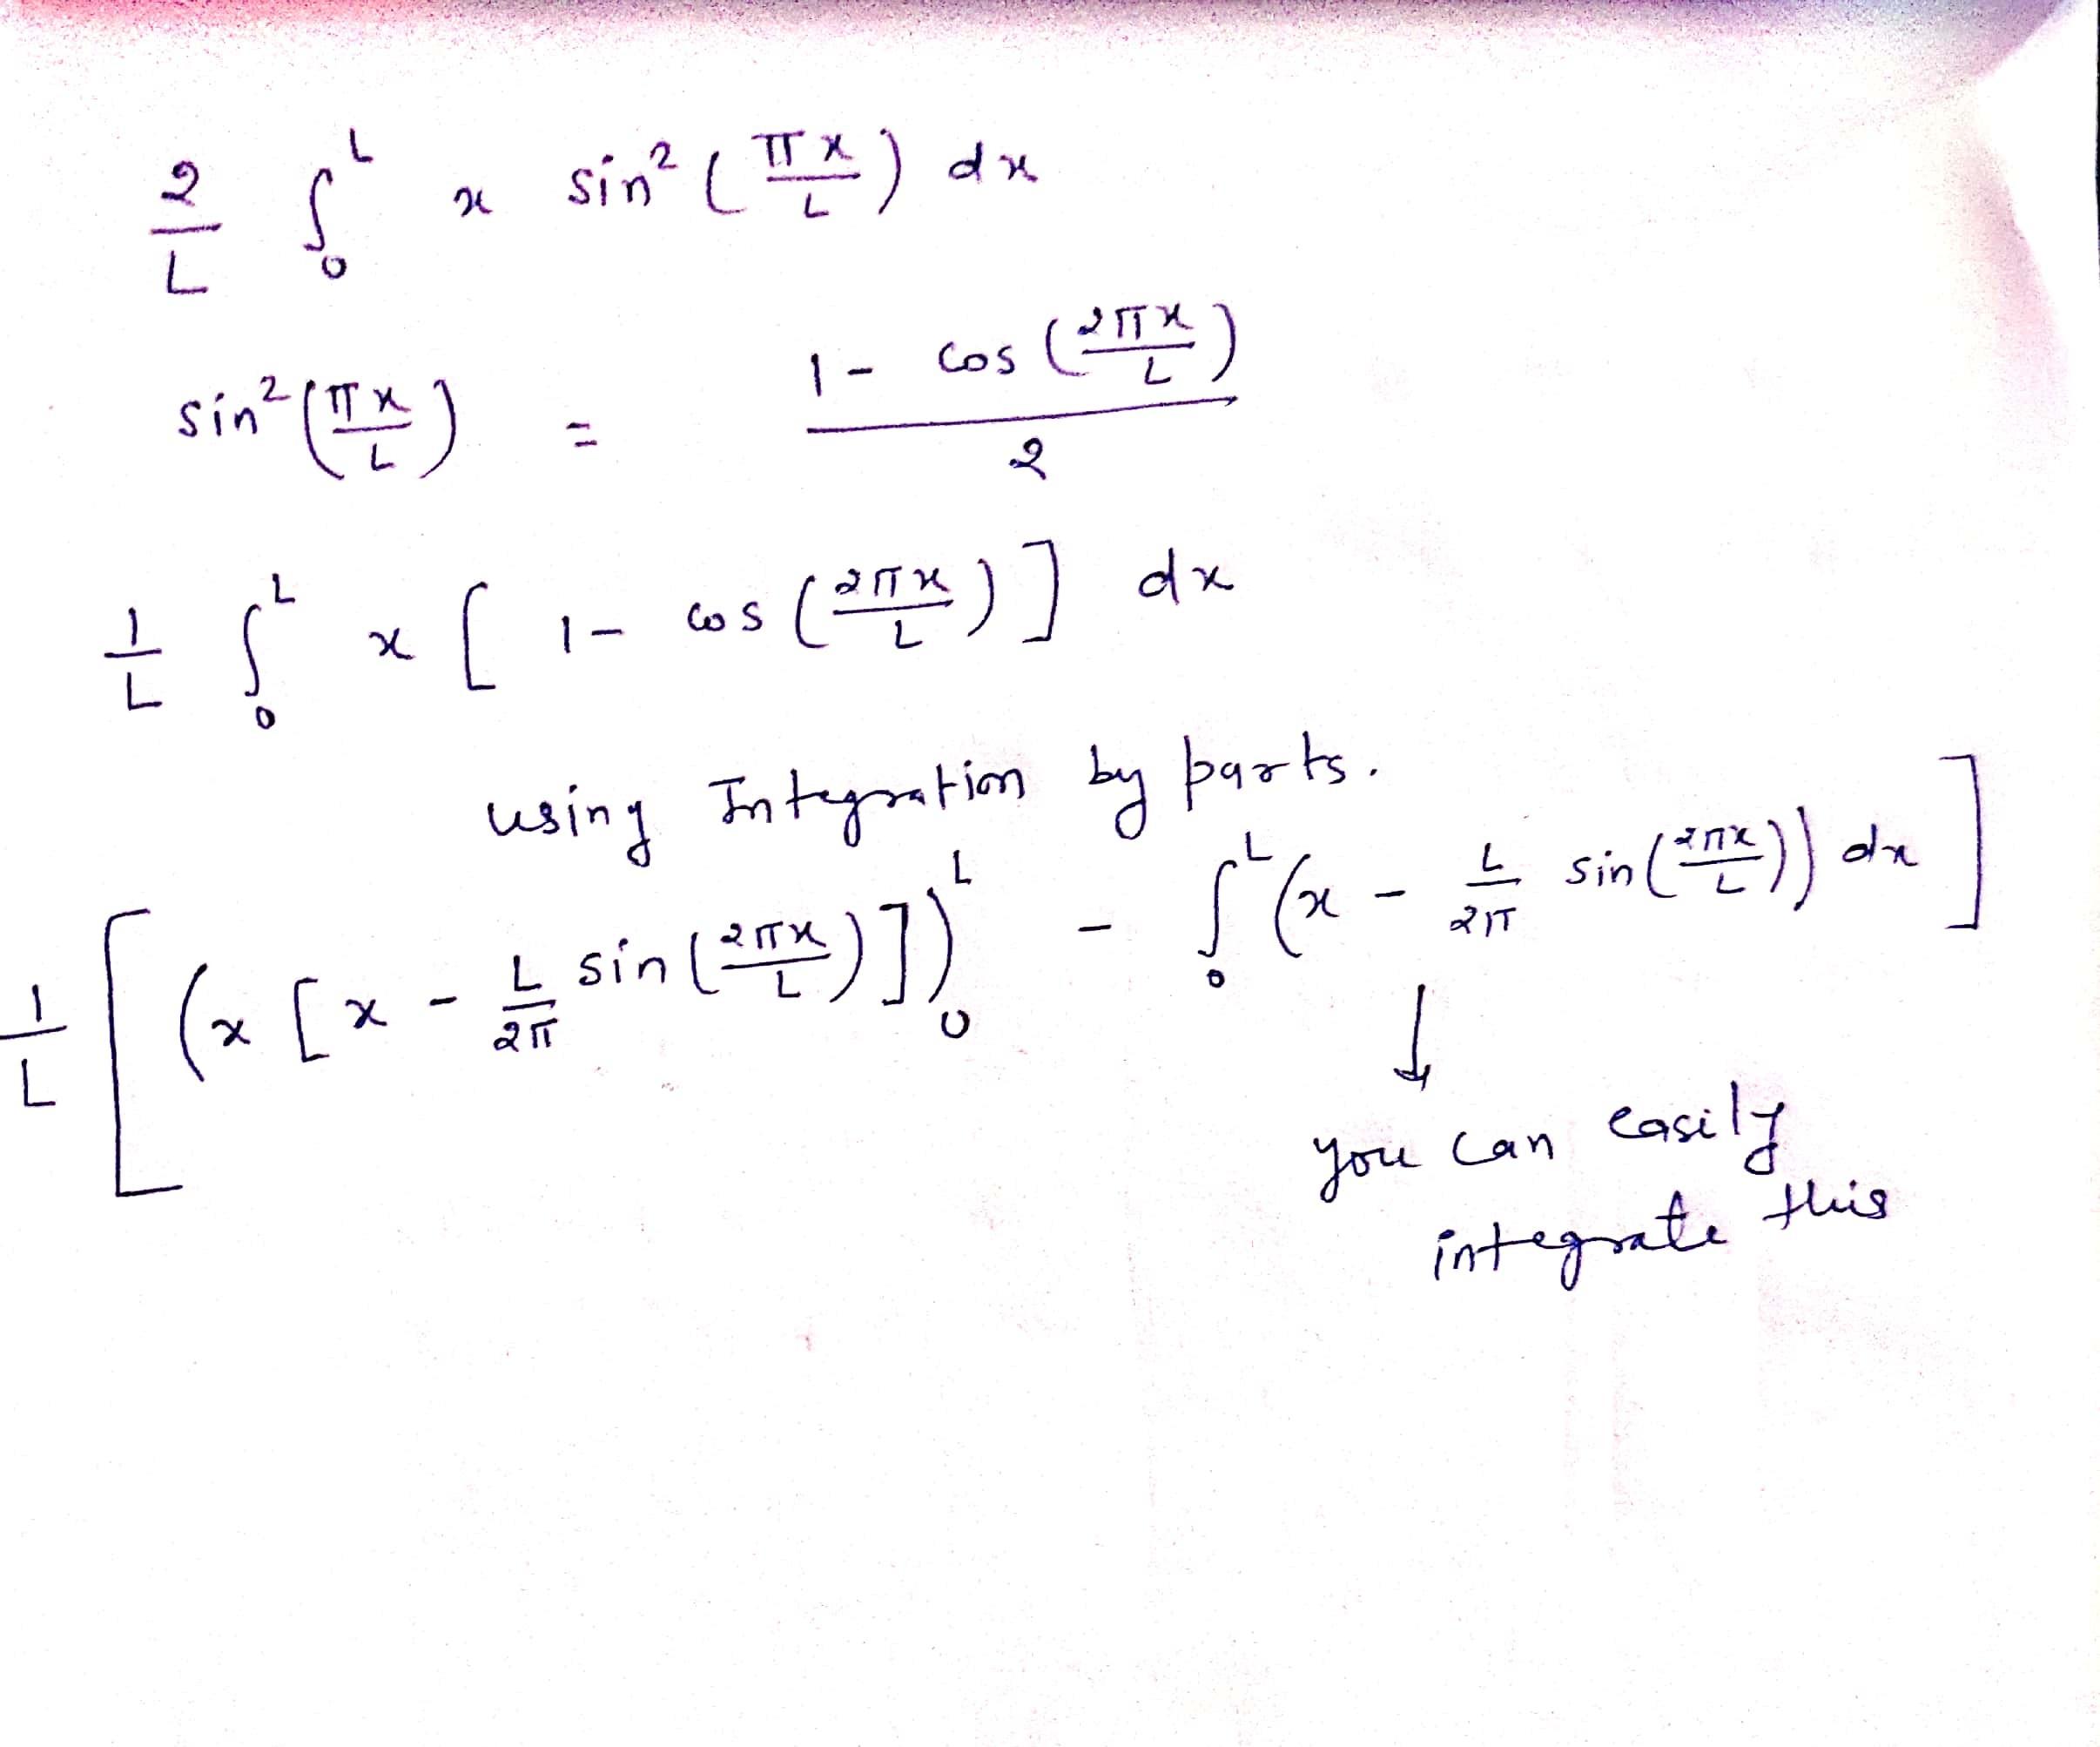 2/L ∫₀ᴸ x sin² (πx/L) dx
sin² (πx/L) = (1 - cos (2πx/L)) / 2
1/L ∫₀ᴸ x [ 1 - cos (2πx/L) ] dx
using Integration by parts.
1/L [ (x [x - L/2π sin (2πx/L)])₀ᴸ - ∫₀ᴸ (x - L/2π sin (2πx/L)) dx ]
↓
you can easily
integrate this